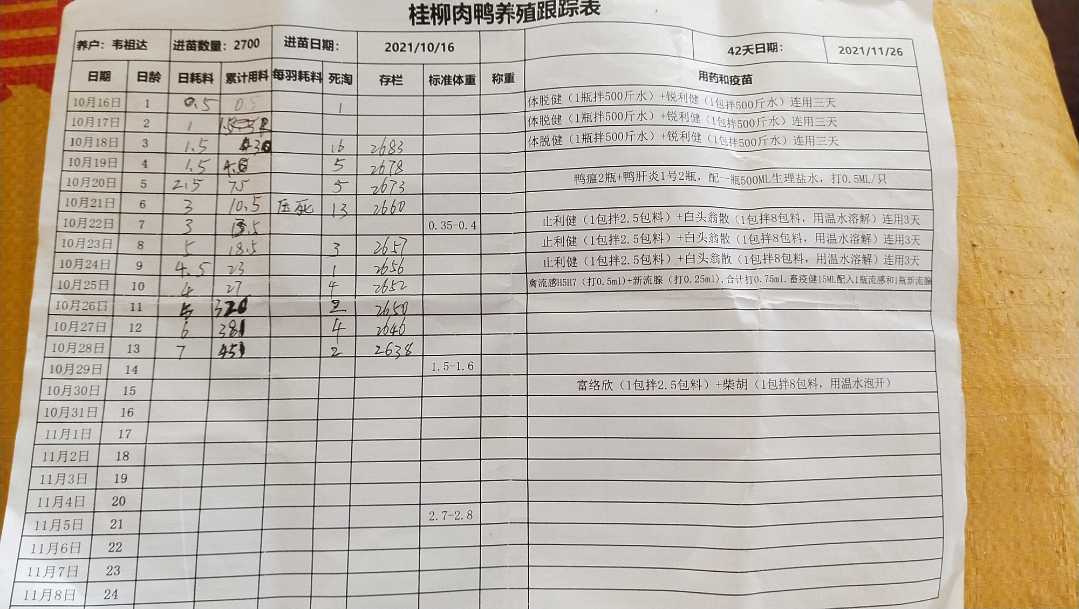 桂柳肉鸭养殖跟踪表
养户：韦祖达 进苗数量：2700 进苗日期： 2021/10/16 42天日期： 2021/11/26
日期 日龄 日耗料 累计用料 每羽耗料 死淘 存栏 标准体重 称重 用药和疫苗
10月16日 1 0.5 0.5 1 体脱健（1瓶拌500斤水）+锐利健（1包拌500斤水）连用三天
10月17日 2 1 体脱健（1瓶拌500斤水）+锐利健（1包拌500斤水）连用三天
10月18日 3 1.5 16 2683 体脱健（1瓶拌500斤水）+锐利健（1包拌500斤水）连用三天
10月19日 4 1.5 5 2678
10月20日 5 2.5 75 5 2673 鸭瘟2瓶+鸭肝炎1号2瓶，配一瓶500ML生理盐水，打0.5ML/只
10月21日 6 3 10.5 压死 13 2660
10月22日 7 3 0.35-0.4 止利健（1包拌2.5包料）+白头翁散（1包拌8包料，用温水溶解）连用3天
10月23日 8 5 18.5 3 2657 止利健（1包拌2.5包料）+白头翁散（1包拌8包料，用温水溶解）连用3天
10月24日 9 4.5 23 1 2656 止利健（1包拌2.5包料）+白头翁散（1包拌8包料，用温水溶解）连用3天
10月25日 10 4 27 4 2652 禽流感H5H7（打0.5ml)+新流腺（打0.25ml),合计打0.75ml.畜疫健15ML配入1瓶流感和1瓶新流腺
10月26日 11 2 2650
10月27日 12 6 381 4 2646
10月28日 13 7 451 2 2638
10月29日 14 1.5-1.6
10月30日 15 富络欣（1包拌2.5包料）+柴胡（1包拌8包料，用温水泡开）
10月31日 16
11月1日 17
11月2日 18
11月3日 19
11月4日 20
11月5日 21 2.7-2.8
11月6日 22
11月7日 23
11月8日 24